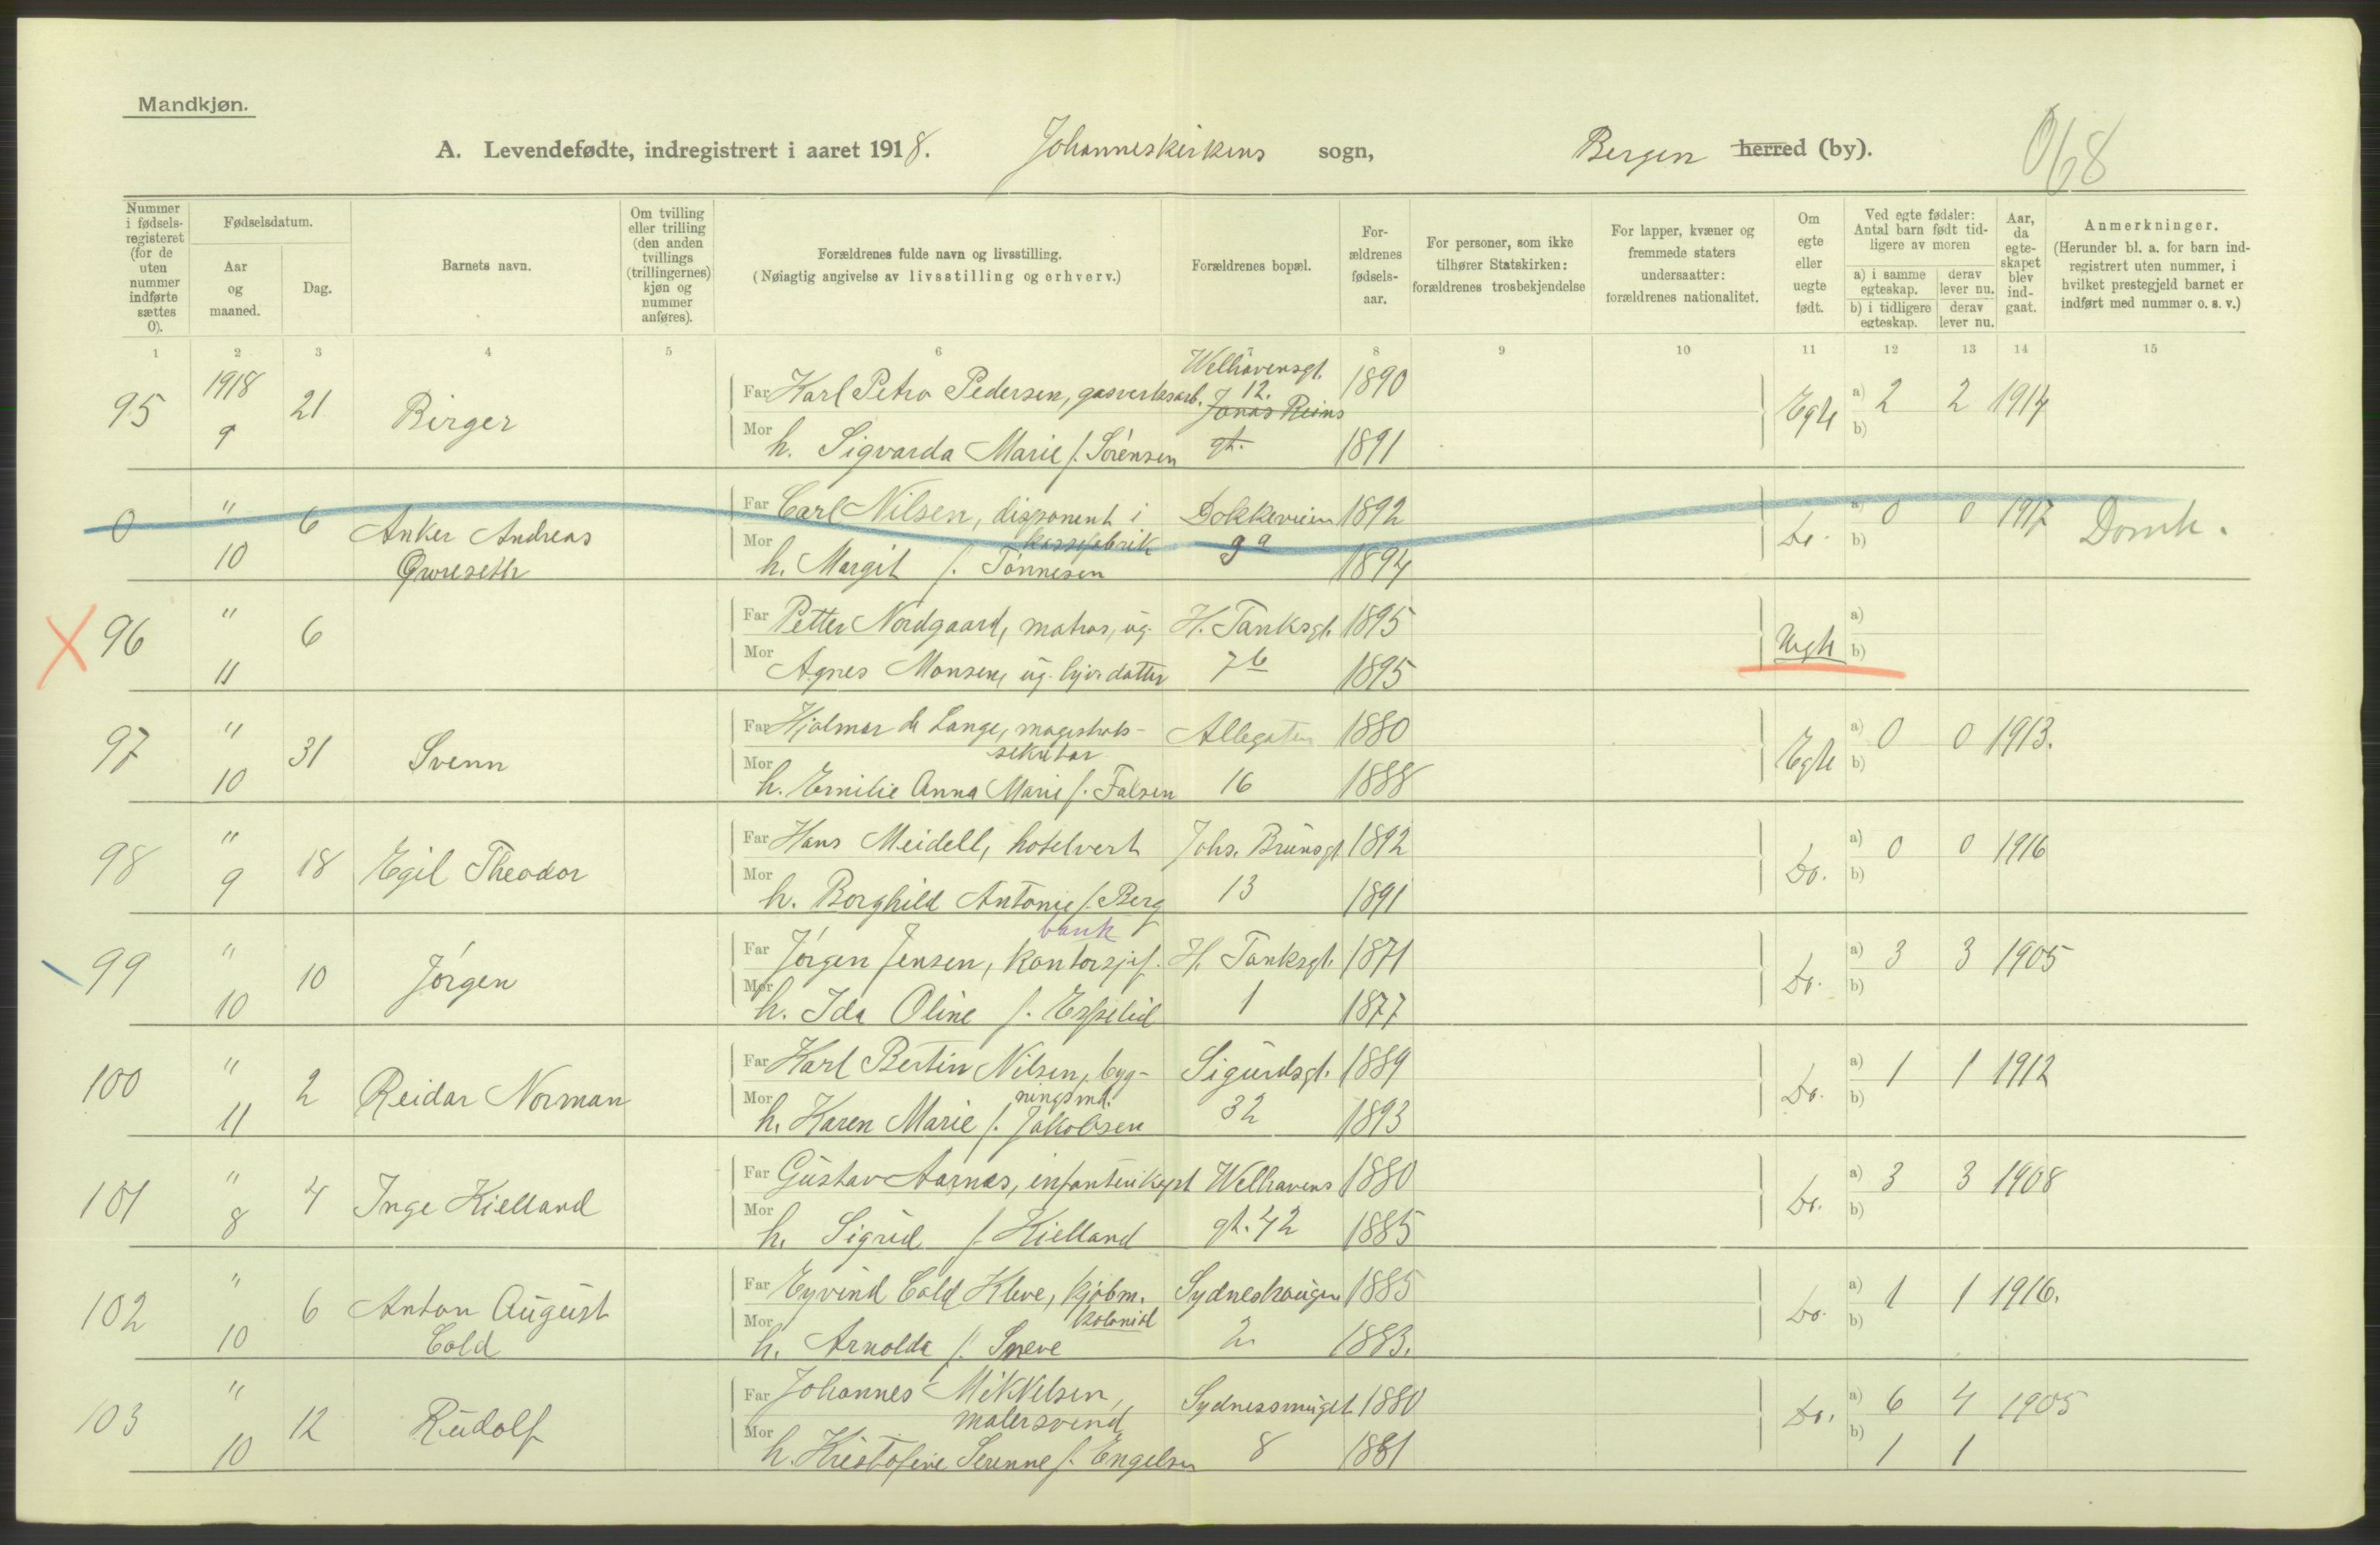 Mandkjøn.
A. Levendefødte, indregistrert i aaret 1918. Johanneskirkens sogn, Bergen herred (by).
068
Nummer i fødsels-registeret (for de uten nummer indførte sættes 0).
Fødselsdatum.
Aar og maaned.
Dag.
Barnets navn.
Om tvilling eller trilling (den anden tvillings (trillingernes) kjøn og nummer anføres).
Forældrenes fulde navn og livsstilling.
(Nøiagtig angivelse av livsstilling og erhverv.)
Forældrenes bopæl.
For-ældrenes fødsels-aar.
For personer, som ikke tilhører Statskirken: forældrenes trosbekjendelse
For lapper, kvæner og fremmede staters undersaatter: forældrenes nationalitet.
Om egte eller uegte født.
Ved egte fødsler: Antal barn født tid-ligere av moren
a) i samme egteskap.
derav lever nu.
b) i tidligere egteskap.
derav lever nu.
Aar, da egte-skapet blev ind-gaat.
Anmerkninger.
(Herunder bl. a. for barn ind-registrert uten nummer, i hvilket prestegjeld barnet er indført med nummer o. s. v.)
1 2 3 4 5 6 7 8 9 10 11 12 13 14 15
95 1918 9 21 Birger
Far Karl Petro Pedersen, gasverksarb. Welhavensgt. 12. Jonas Reins gt. 1890
Mor h. Sigvarda Marie f. Sörensen 1891
Egte a) 2 2 1914
b)
0 " 10 6 Anker Andreas
Far Carl Nilsen, disponent i Dokkeveien 1892
kassefabrik 9a
Mor h. Margit f. Tönnesen 1894
Do. a) 0 0 1917 Domk.
b)
96 " 11 6
Far Petter Nordgaard, matros, ug. H. Tanksgt. 1895
Mor Agnes Monsen, ug. 7b 1895
Uegte a)
b)
97 " 10 31 Svenn
Far Hjalmar de Lange, magistrats- Allegaten 1880
sekretær
Mor h. Emilie Anna Marie f. Falsen 16 1888
Egte a) 0 0 1913.
b)
98 " 9 18 Egil Theodor
Far Hans Meidell, hotelvert Johs. Brunsgt 1892
Mor h. Borghild Antonie f. Berg 13 1891
Do. a) 0 0 1916
b)
bank
99 " 10 10 Jörgen
Far Jörgen Jensen, kontorsjef. H. Tanksgt. 1871
Mor h. Ida Oline f. Espelid 1 1877
Do. a) 3 3 1905
b)
100 " 11 2 Reidar Norman
Far Karl Bertin Nilsen, byg- Sigurdsgt. 1889
ningsmd.
Mor h. Karen Marie f. Jakobsen 32 1893
Do. a) 1 1 1912
b)
101 " 8 4 Inge Kielland
Far Gustav Aarnæs, infanterikapt Welhavens 1880
Mor h. Sigrid f. Kielland gt. 42 1885
Do. a) 3 3 1908
b)
102 " 10 6 Anton August
Cold
Far Eyvind Cold Kleve, kjöbm. Sydneshaugen 1885
kolonial
Mor h. Arnolda f. Sneve 2. 1883.
Do. a) 1 1 1916.
b)
103 " 10 12 Rudolf
Far Johannes Mikkelsen, Sydnessmuget 1880
malersvend
Mor h. Kristofine Serenne f. Engelsen 8 1881
Do. a) 6 4 1905
b) 1 1